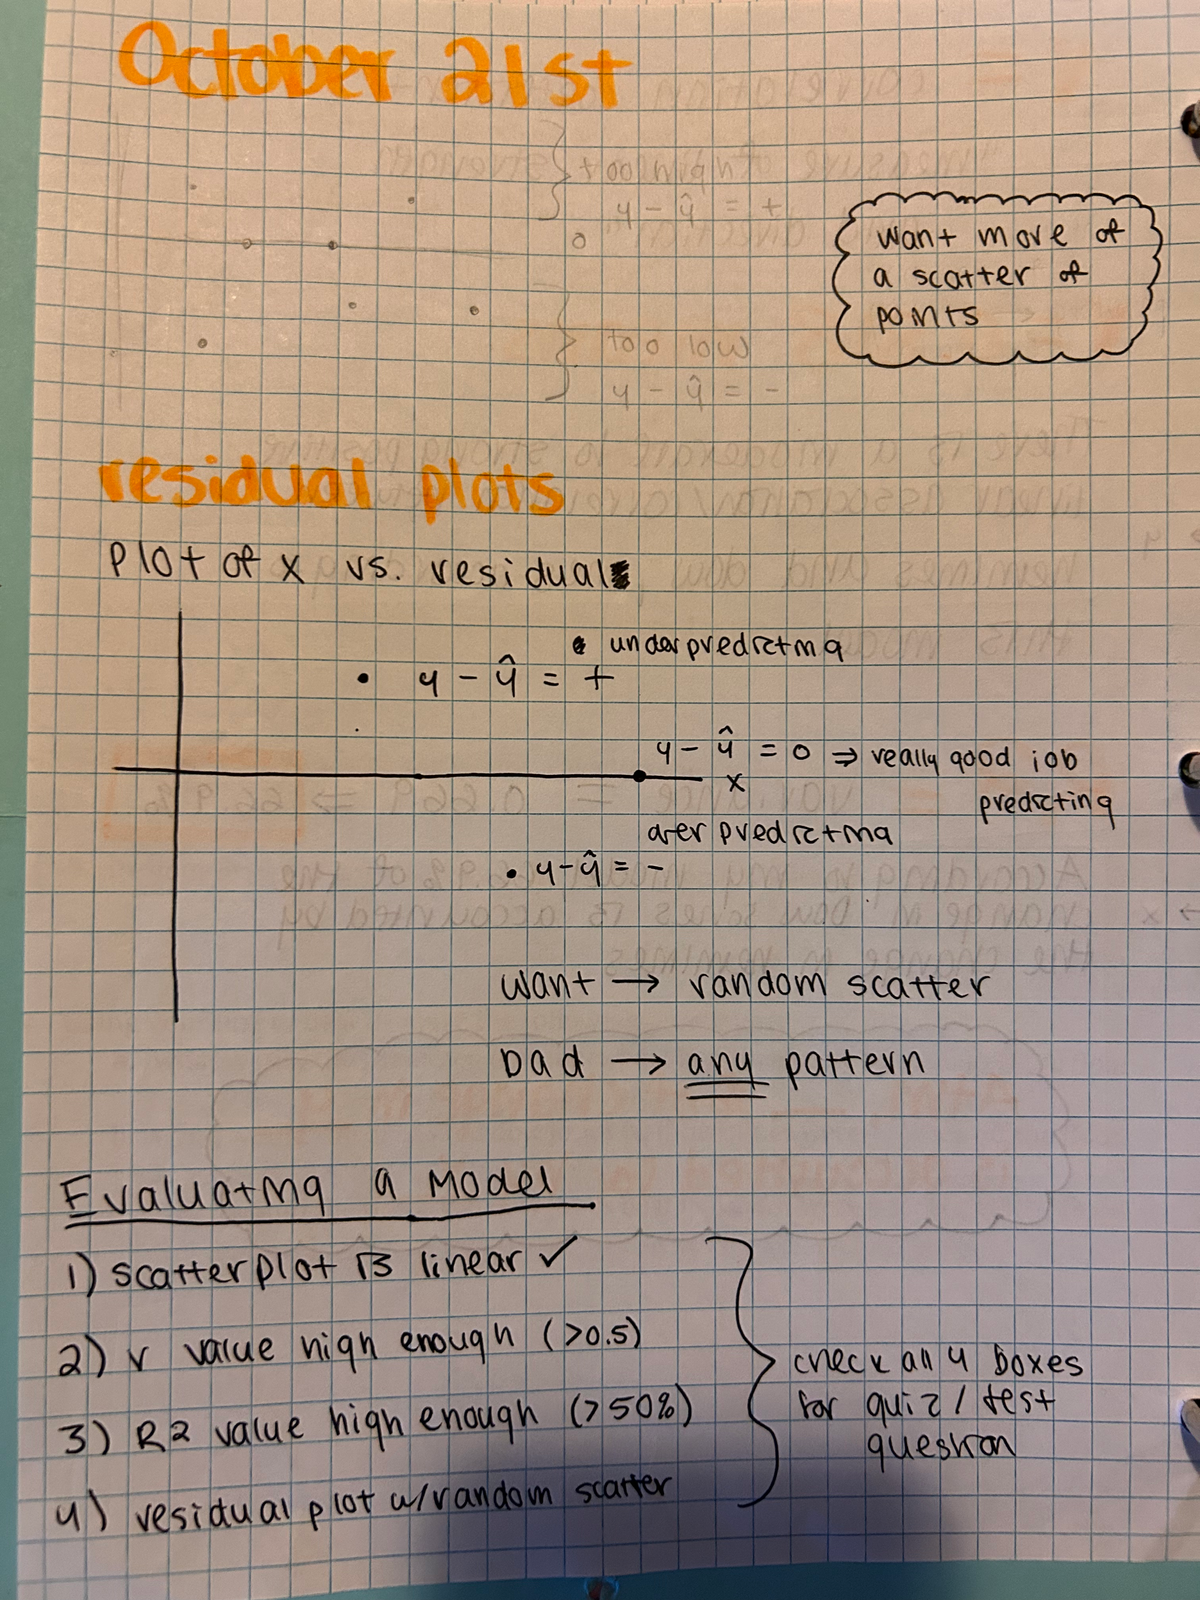 October 21st
want more of
a scatter of
points
residual plots
Plot of x vs. residual
underpredicting
y - ŷ = +
y - ŷ = 0 ⇒ really good job
predicting
x
over predicting
y - ŷ = -
want → random scatter
bad → any pattern
Evaluating a Model
1) scatterplot is linear ✓
2) r value high enough (>0.5)
3) R2 value high enough (>50%)
4) residual plot w/random scatter
check all 4 boxes
for quiz / test
question